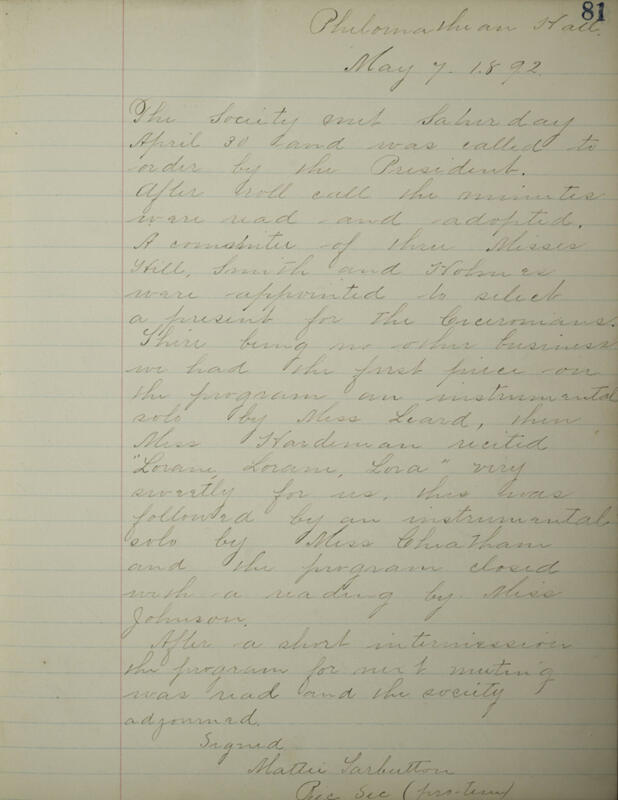 81
Philomathean Hall.
May 7. 1892.
The Society met Saturday
April 30 and was called to
order by the President.
After roll call the minutes
were read and adopted.
A committee of three Misses
Hill, Smith and Holmes
were appointed to select
a present for the Ciceronians.
There being no other business
we had the first piece on
the program an instrumental
solo by Miss Leard, then
Miss Hardeman recited
"Loram, Loram, Lora" very
sweetly for us, this was
followed by an instrumental
solo by Miss Cheatham
and the program closed
with a reading by Miss
Johnson.
After a short intermission
the program for next meeting
was read and the society
adjourned.
Signed
Mattie Tarbutton
Rec Sec (pro-tem)